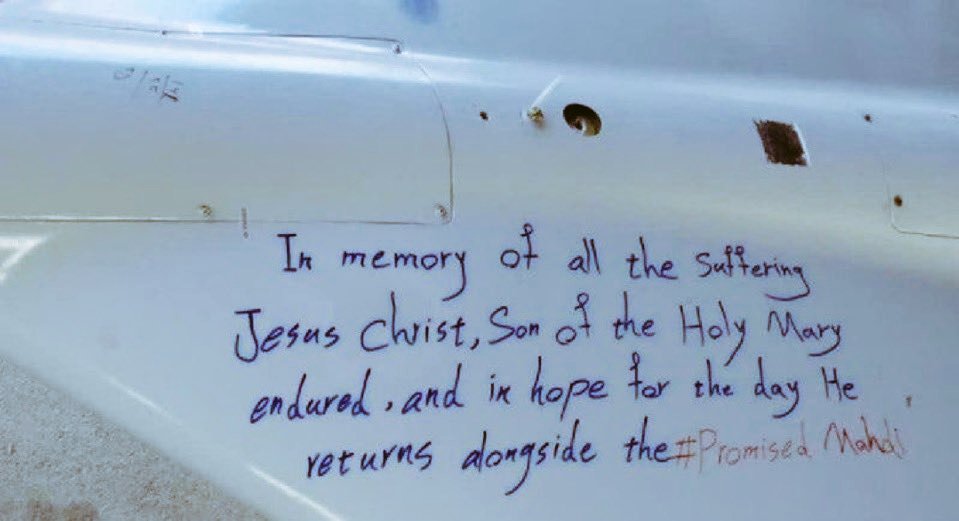 In memory of all the Suffering
Jesus Christ, Son of the Holy Mary
endured, and in hope for the day He
returns alongside the #Promised Mahdi